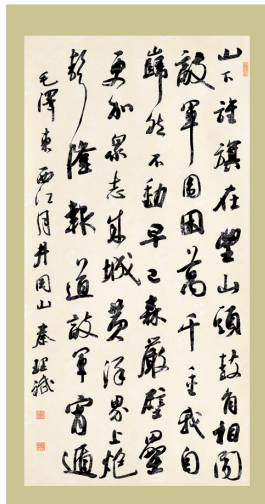 山下旌旗在望山頭鼓角相聞
敵軍圍困萬千重我自
巋然不動早已森嚴壁壘
更加眾志成城黃洋界上炮
聲隆報道敵軍宵遁
毛澤東西江月井岡山秦